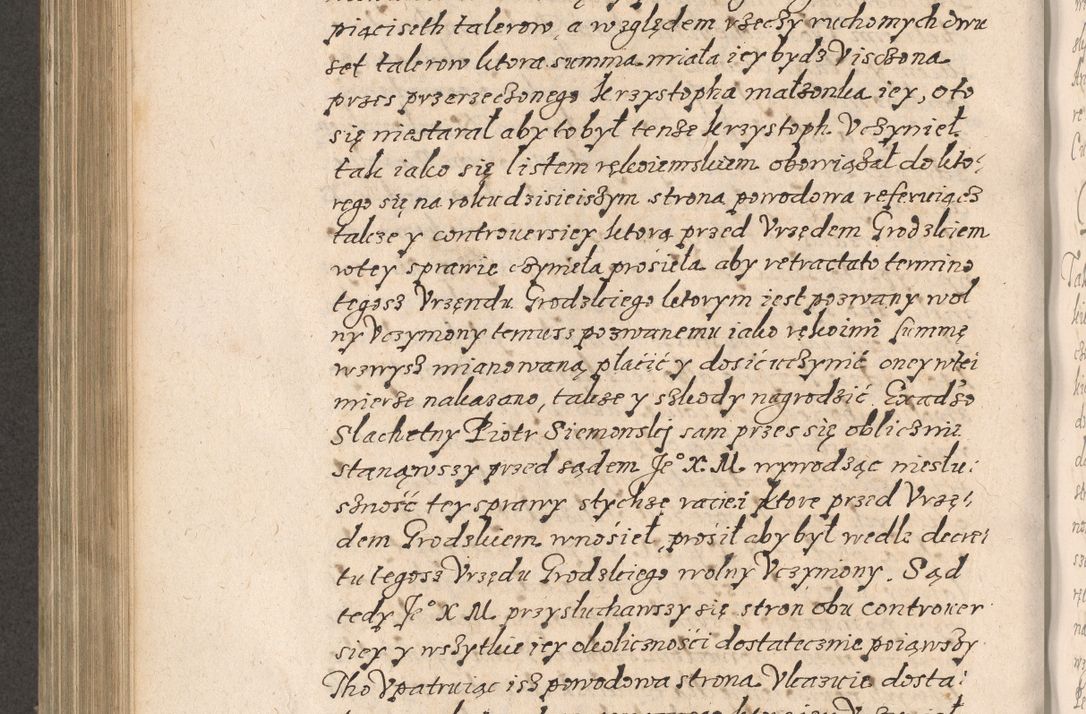 piąciseth talerow, a względem rzeczy ruchomych dwu
set talerow ktora summa miała iey bydz Visczona
przes przerzeczonego Krzystopha małzonka iey, oto
się niestarał aby to był tenze Krzystoph Vczynieł
tak iako się listem rękoiemskiem obowiązał do kto:
rego się na roku dzisieiszym strona powodowa referuiącz
takze y controuersiey ktorą przed Vrzędem Grodzkiem
wtey sprawie czynieła prosieła aby retractato termino
tegosz Vrzęndu Grodzkiego ktorym iest pozwany wol
ny Vczymiony temusz pozwanemu iako rękoimi summę
wzwysz mianowaną płacić y dosić uczynić oney wtei
mierze nakazano, takze y szkody nagrodzić. Exadzo
Slachetny Piotr Siemonskj sam przes się obliczniε
stanąwszy przed sądem Jeº X. M. wywodząc nieslu:
szność tey sprawy stychze raciei ktore przed Vrzę:
dem Grodzkiem wnosieł, prosił aby był wedlε decre:
tu tegosz Vrzędu Grodzkiego wolny Vczymiony. Sąd
tedy Jeº X M. przysłuchawszy się stron obu controuer
siey y wszytkie iey okoliczności dostatecznie poiąwszy
Tho Vpatruiąc isz powodowa strona Vkazuie dosta: